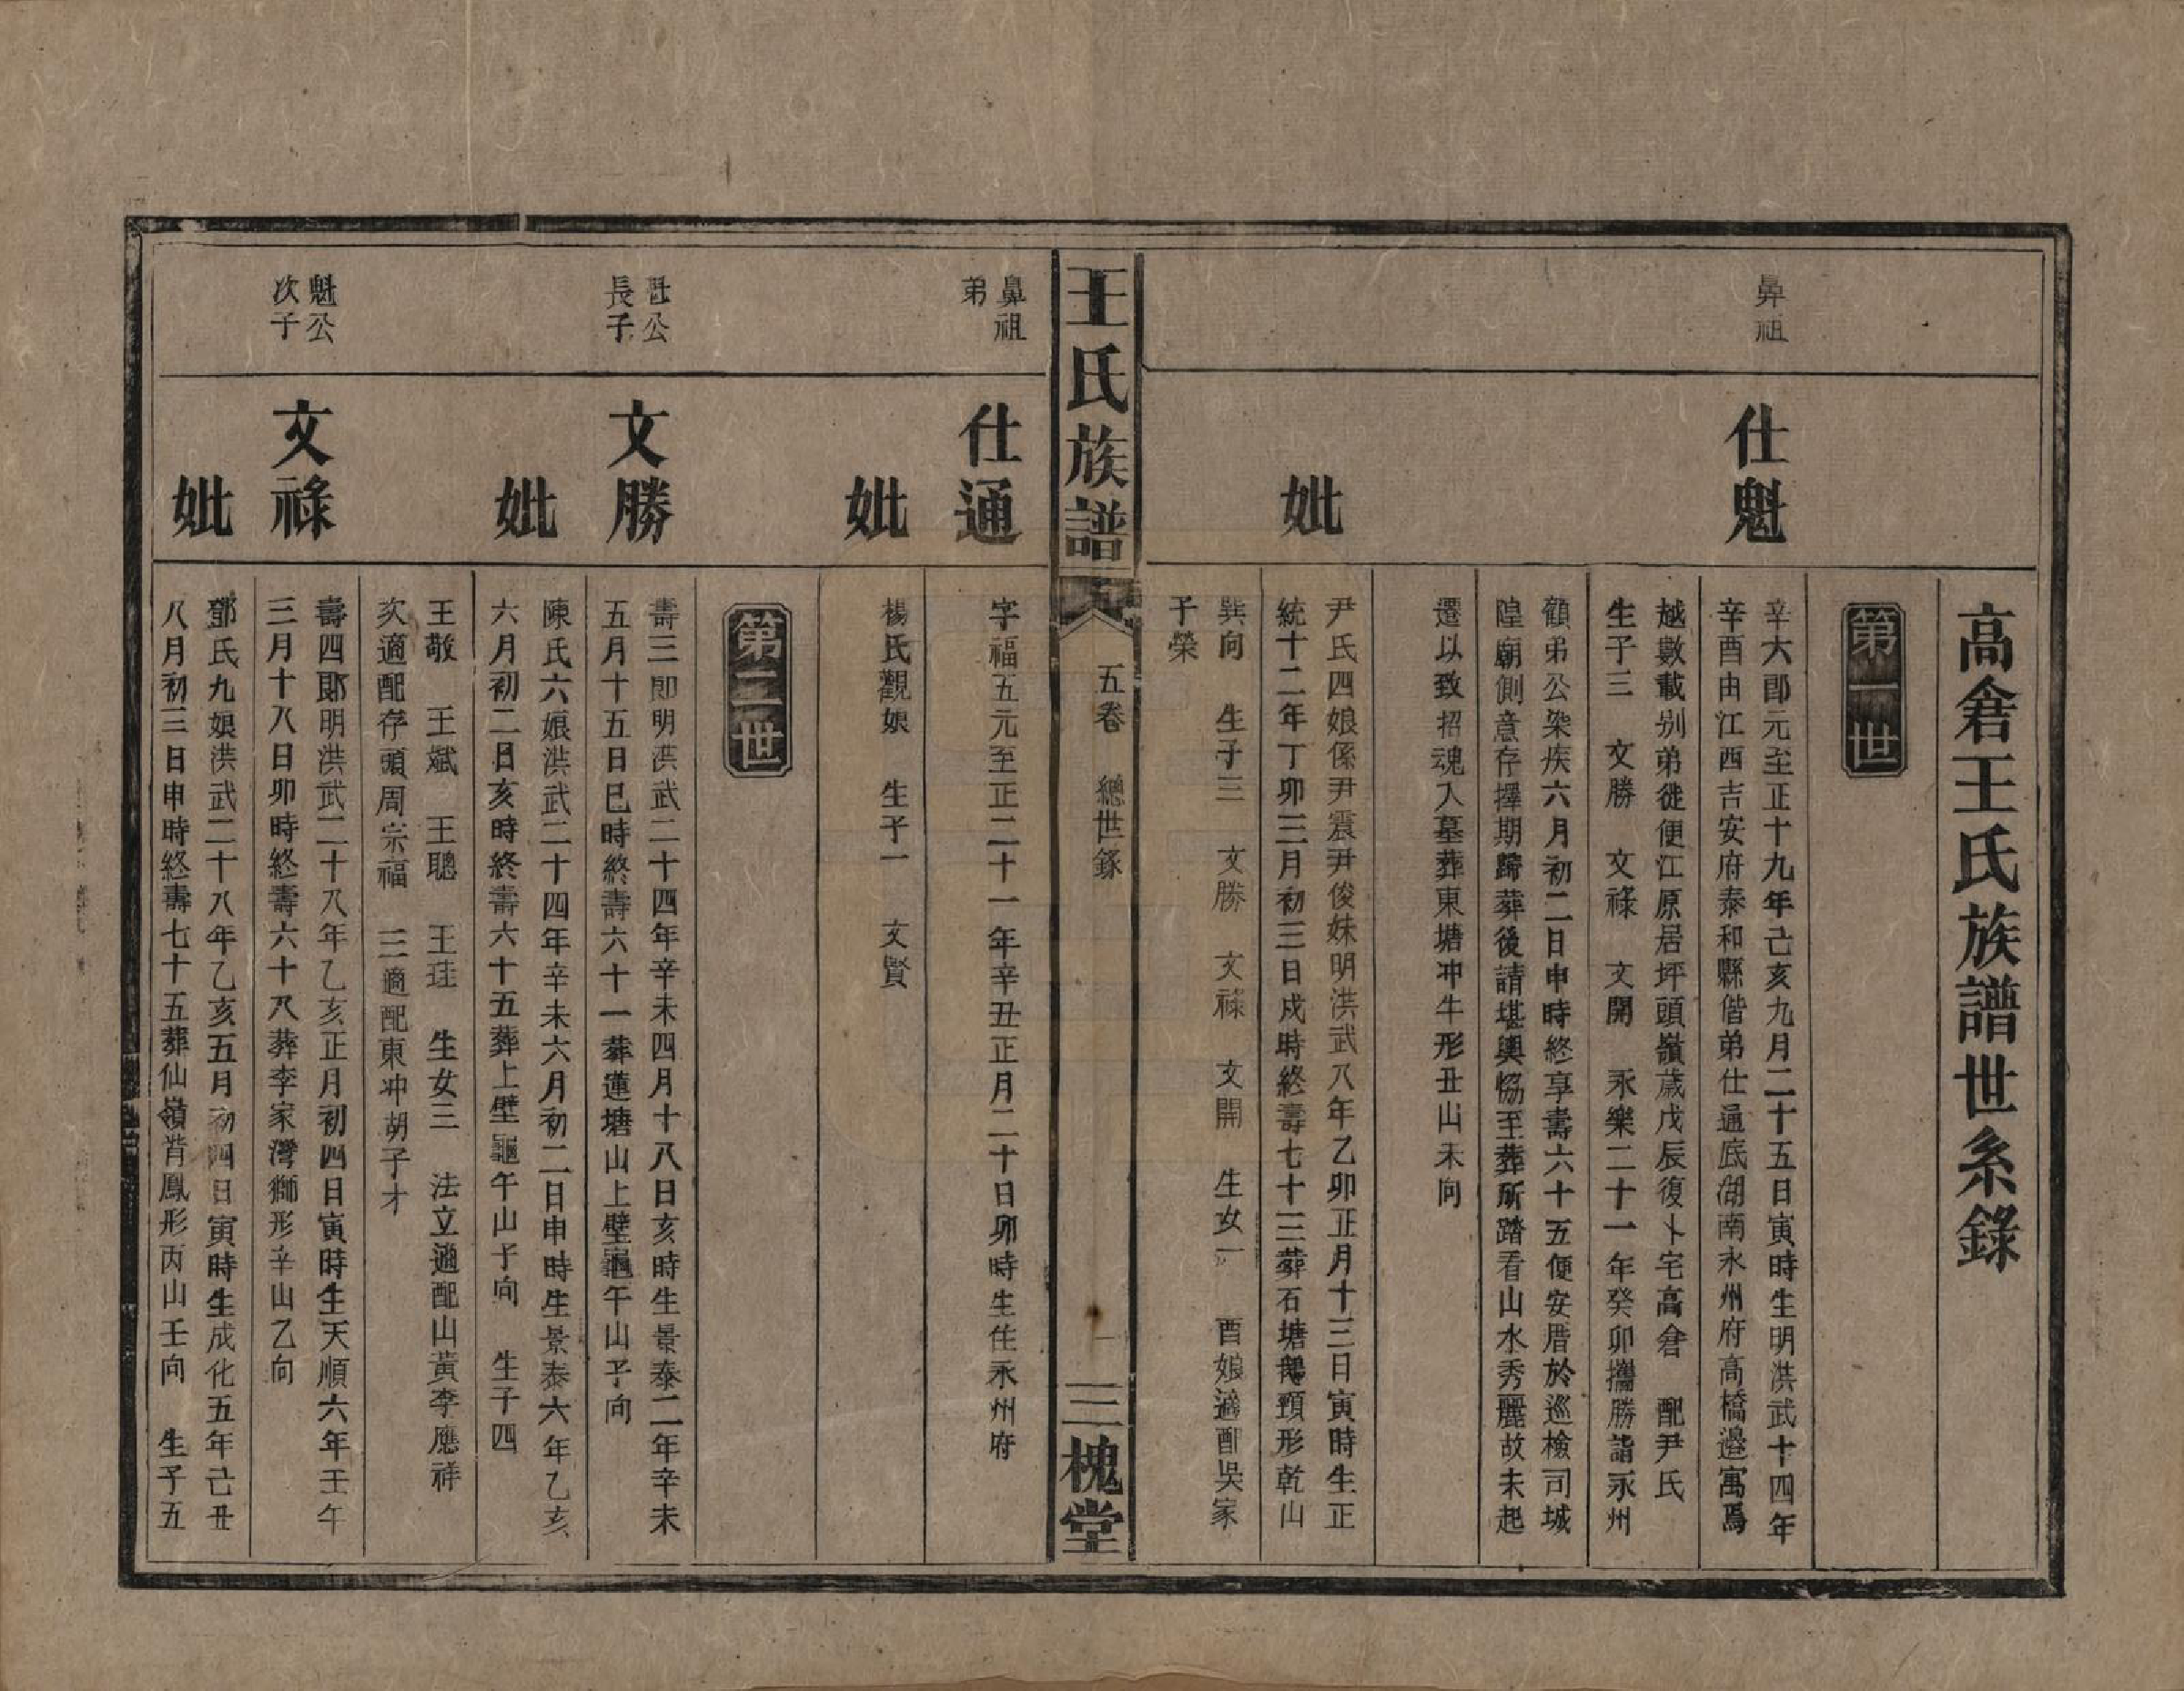 高倉王氏族譜世系錄
第一世
鼻祖
仕魁
辛六郎元至正十九年己亥九月二十五日寅時生明洪武十四年
辛酉由江西吉安府泰和縣偕弟仕通底湖南永州府高橋邊寓焉
越數載别弟徙便江原居坪頭嶺歲戊辰復卜宅高倉 配尹氏
生子三 文勝 文祿 文開 永樂二十一年癸卯攜勝詣永州
顧弟公染疾六月初二日申時終享壽六十五便安厝於巡檢司城
隍廟側意存擇期歸葬後請堪輿恊至葬所踏看山水秀麗故未起
遷以致招魂入墓葬東塘冲牛形丑山未向
妣
尹氏四娘係尹震尹俊妹明洪武八年乙卯正月十三日寅時生正
統十二年丁卯三月初三日戌時終壽七十三葬石塘鵝頸形乾山
巽向 生子三 文勝 文祿 文開 生女一 酉娘適配吳家
子榮
王氏族譜
五卷 總世錄
一
三槐堂
鼻祖
弟
仕通
字福五元至正二十一年辛丑正月二十日卯時生住永州府
妣
楊氏觀娘 生子一 文賢
第二世
魁公
長子
文勝
壽三郎明洪武二十四年辛未四月十八日亥時生景泰二年辛未
五月十五日巳時終壽六十一葬蓮塘山上壁龜午山子向
妣
陳氏六娘洪武二十四年辛未六月初二日申時生景泰六年乙亥
六月初二日亥時終壽六十五葬上壁龜午山子向 生子四
王敬 王斌 王聰 王珪 生女三 法立適配山黃李應祥
次適配存頭周宗福 三適配東冲胡子才
魁公
次子
文祿
壽四郎明洪武二十八年乙亥正月初四日寅時生天順六年壬午
三月十八日卯時終壽六十八葬李家灣獅形辛山乙向
妣
鄧氏九娘洪武二十八年乙亥五月初四日寅時生成化五年己丑
八月初三日申時終壽七十五葬仙嶺背鳳形丙山壬向 生子五